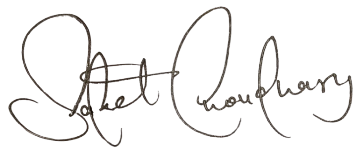 Saket Choudhary